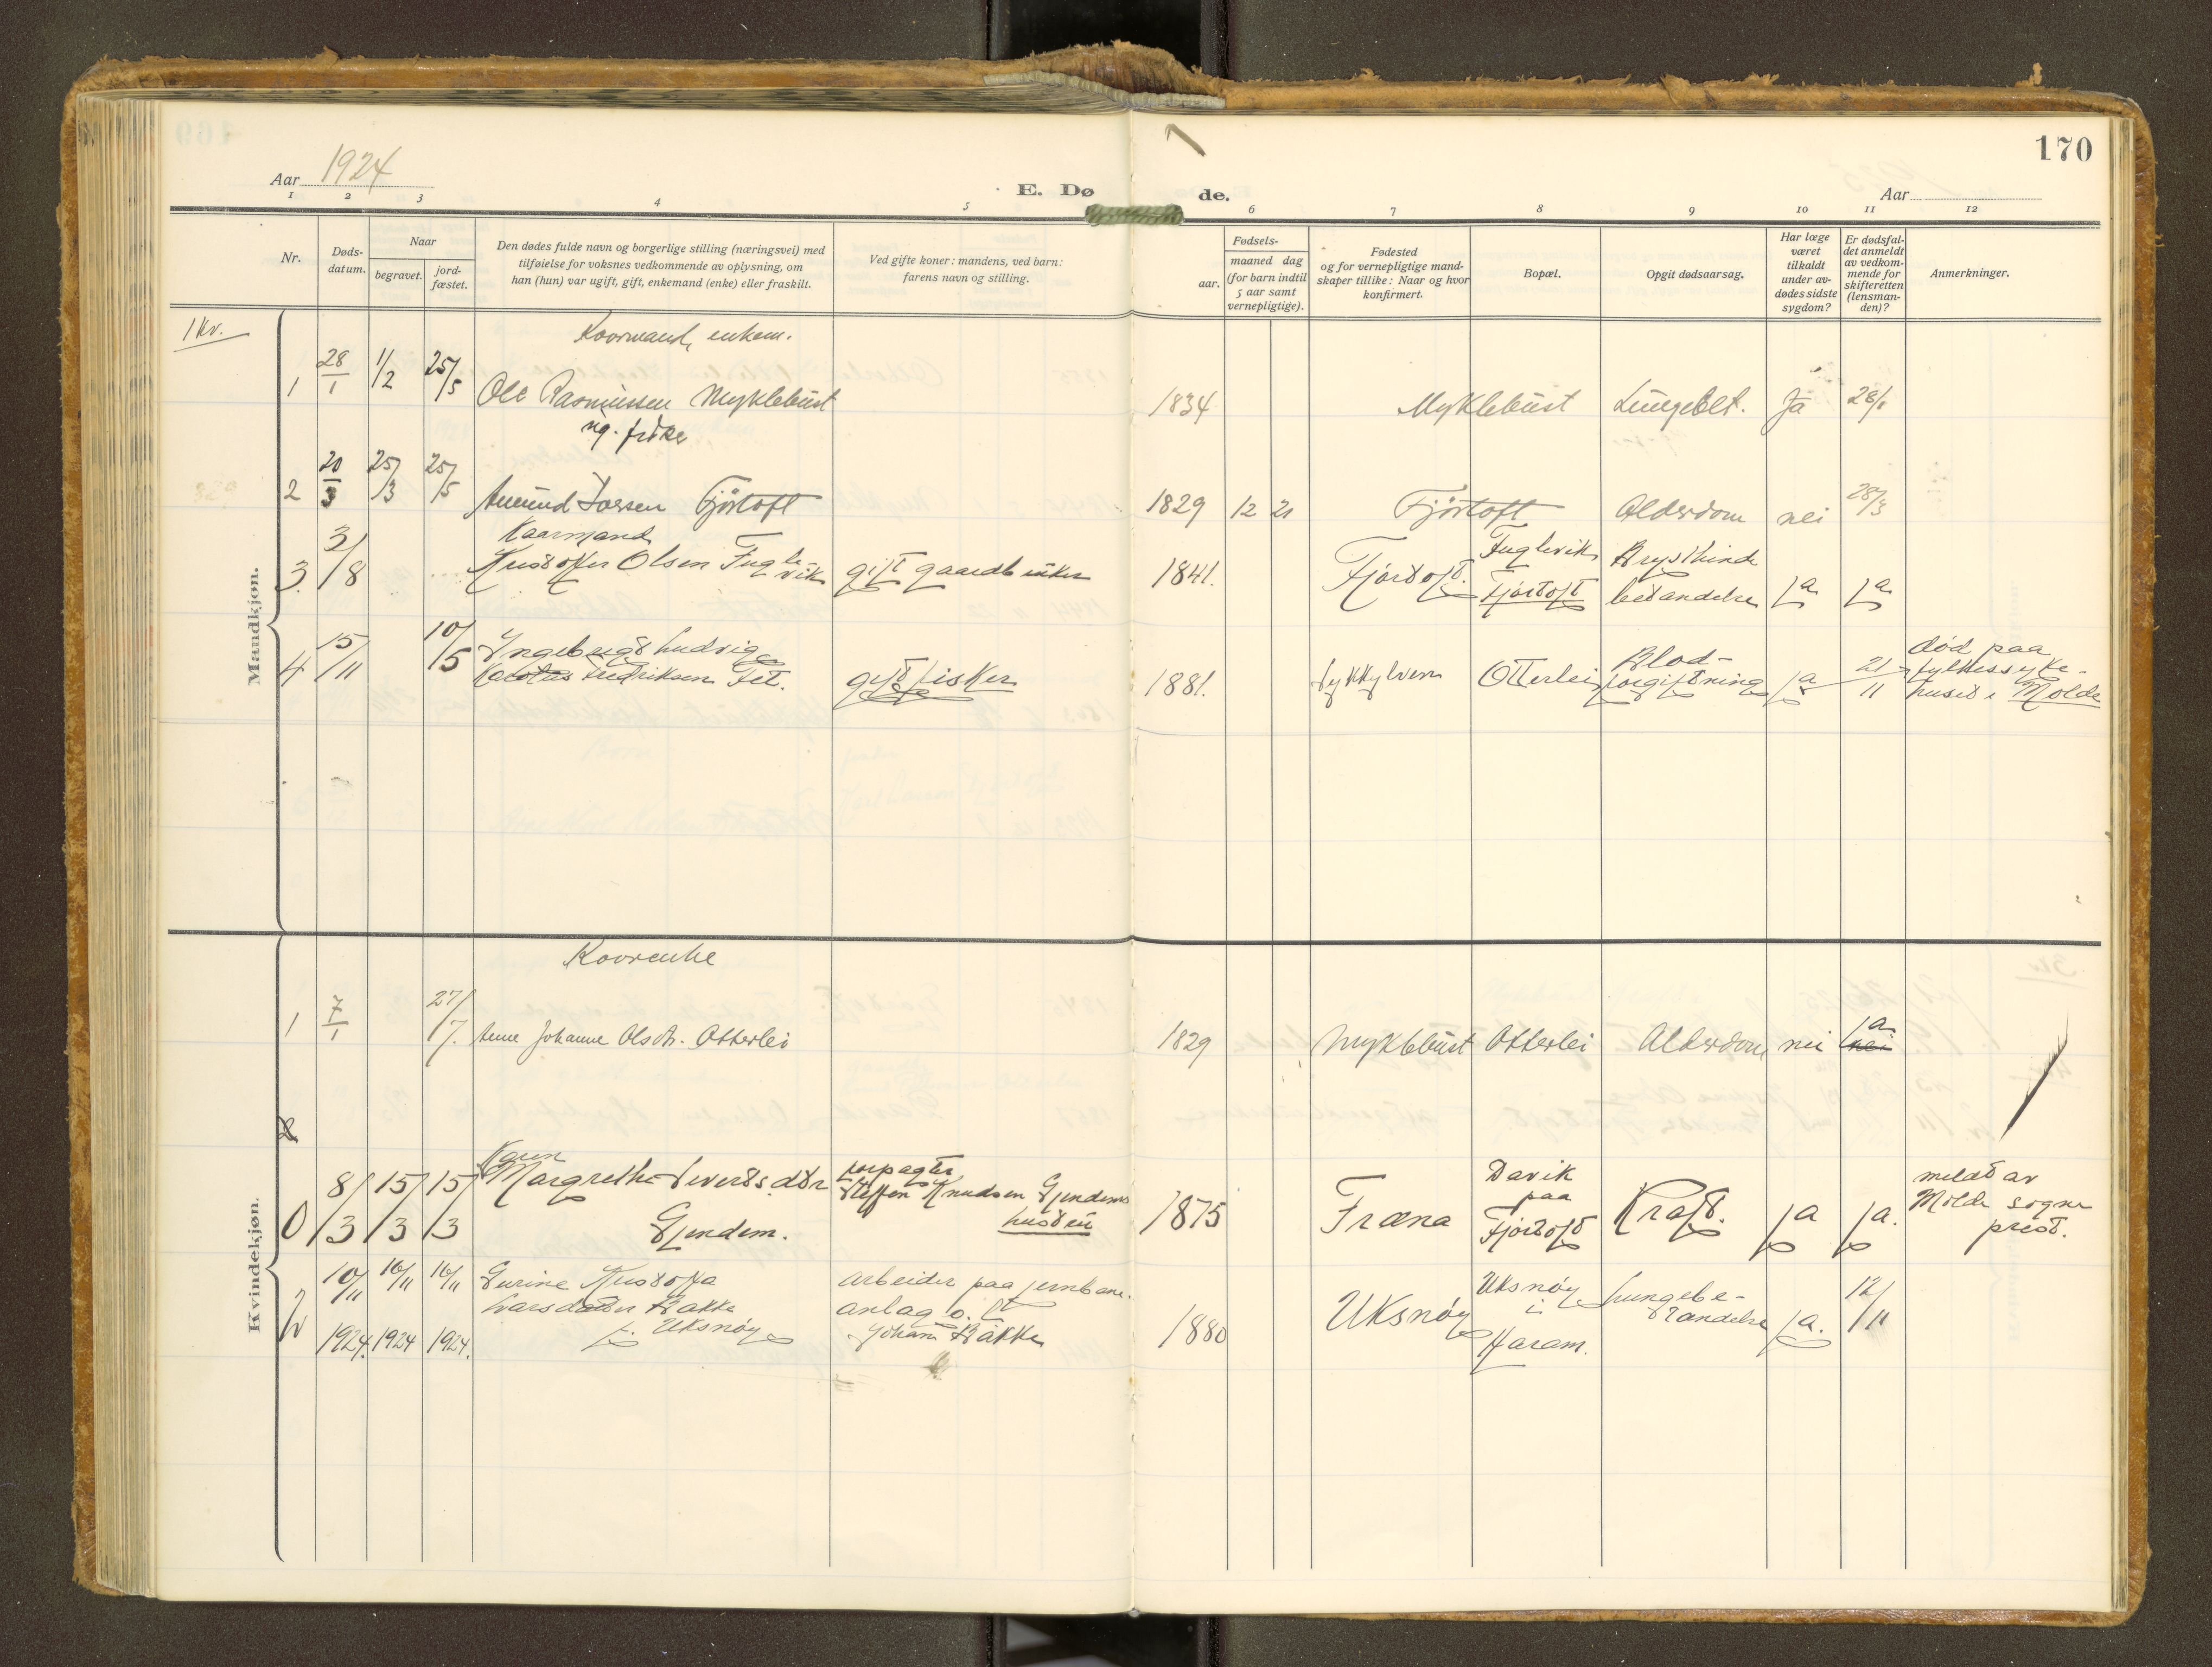 170
Aar 1924
E. Døde.
Aar
1 2 3 4 5 6 7 8 9 10 11 12
Nr.
Døds-
datum.
Naar
begravet.
jord-
fæstet.
Den dødes fulde navn og borgerlige stilling (næringsvei) med
tilføielse for voksnes vedkommende av oplysning, om
han (hun) var ugift, gift, enkemand (enke) eller fraskilt.
Ved gifte koner: mandens, ved barn:
farens navn og stilling.
Fødsels-
aar.
maaned dag
(for barn indtil
5 aar samt
vernepligtige).
Fødested
og for vernepligtige mand-
skaper tillike: Naar og hvor
konfirmert.
Bopæl.
Opgit dødsaarsag.
Har læge
været
tilkaldt
under av-
dødes sidste
sygdom?
Er dødsfal-
det anmeldt
av vedkom-
mende for
skifteretten
(lensman-
den)?
Anmerkninger.
Mandkjøn.
1 kv.
Koormand, enkem.
1 28/1 1/2 25/5 Ole Rasmussen Myklebust 1834 Myklebust Lungebet. Ja 28/1
ug. fisker
2 20/3 25/3 25/5 Amund Larsen Fjörtoft 1829 12 21 Fjörtoft Alderdom nei 28/3
Kaarmand
3 3/8 Kristoffer Olsen Fugle-
vik gift gaardbruker 1841. Fjørtoft. Fuglevik
Fjørtoft Brysthinde
betændelse ja ja
4 15/11 10/5 Ingebrigt Ludvig
Fredriksen Fet. gift fisker 1881. Sykkylven Otterlei Blod-
forgiftning ja 21/11 død paa
fylkessyke-
huset i Molde
Kvindekjøn.
Koorenke
1 7/1 27/7. Anne Johanne Olsdt. Otterlei 1829 Myklebust Otterlei Alderdom nei ja
nei
2
0 8/3 15/3 15/3 Karen
Margrethe Sivertsdtr
Gjendem. forpagter
Steffen Knudsen Gjendems
hustru 1875 Fræna Davik
paa
Fjørtoft Kræft. ja ja. meldt av
Molde sogne
prest.
2 10/11 1924. 16/11 1924 16/11 1924. Gurine Kristoffa
Larsdatter Bakke
f. Uksnøy arbeider paa jernbane.
anlag o. lt
Johan Bakke 1880 Uksnøy Uksnøy
i
Haram. Lungebe-
tændelse ja. 12/11